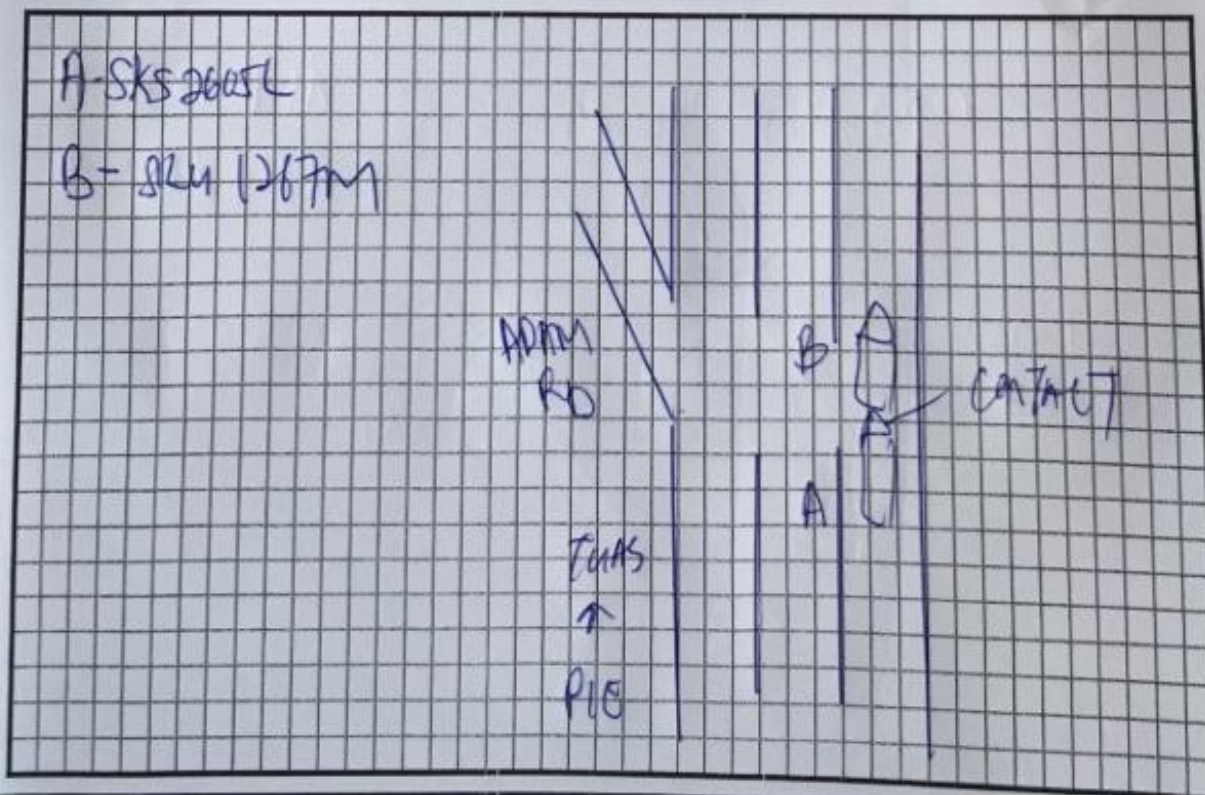 A-SKS2605L
B- SKU 1267M
ADAM
RD
B
CONTACT
A
TUAS
↑
PIE